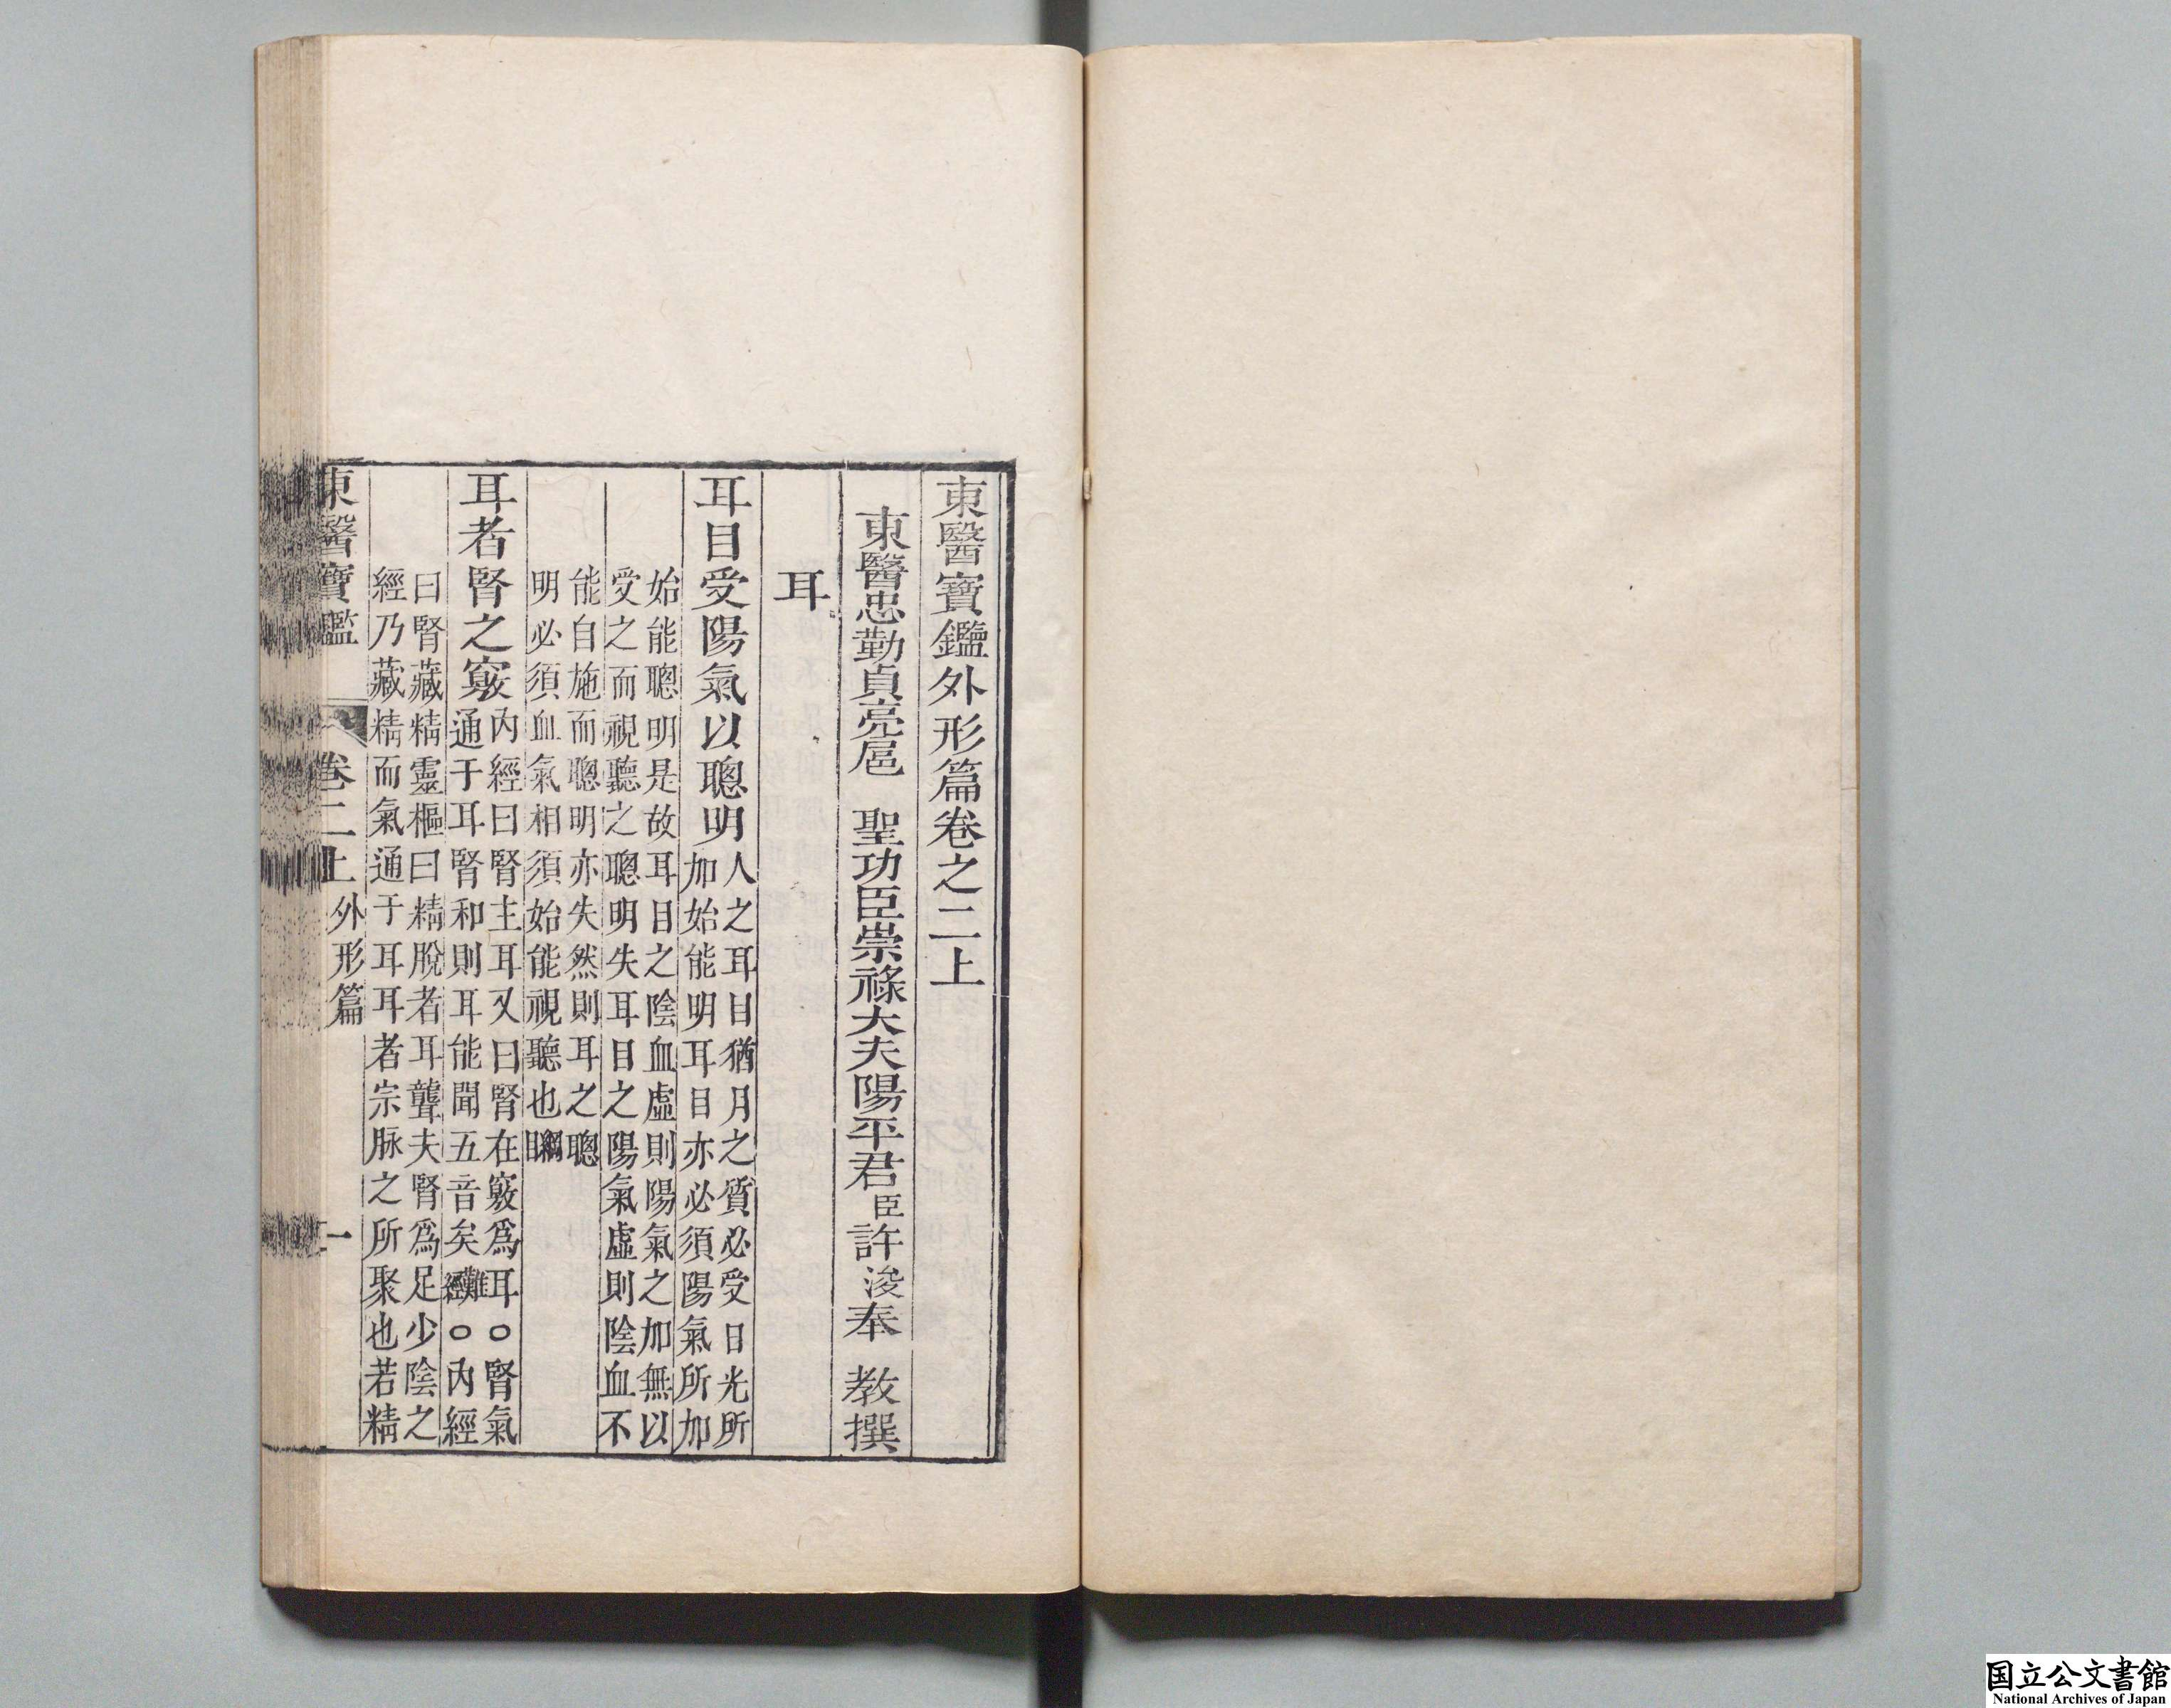 東醫寶鑑外形篇卷之二上
東醫忠勤貞亮扈　聖功臣崇祿大夫陽平君臣許浚奉　教撰
耳
耳目受陽氣以聰明
人之耳目猶月之質必受日光所
加始能明耳目亦必須陽氣所加
始能聰明是故耳目之陰血虛則陽氣之加無以
受之而視聽之聰明失耳目之陽氣虛則陰血不
能自施而聰明亦失然則耳之聰
明必須血氣相須始能視聽也
耳者腎之竅
內經曰腎主耳又曰腎在竅爲耳○腎氣
通于耳腎和則耳能聞五音矣難經○內經
曰腎藏精靈樞曰精脫者耳聾夫腎爲足少陰之
經乃藏精而氣通于耳耳者宗脉之所聚也若精
東醫寶鑑　卷二上　外形篇　一
国立公文書館
National Archives of Japan